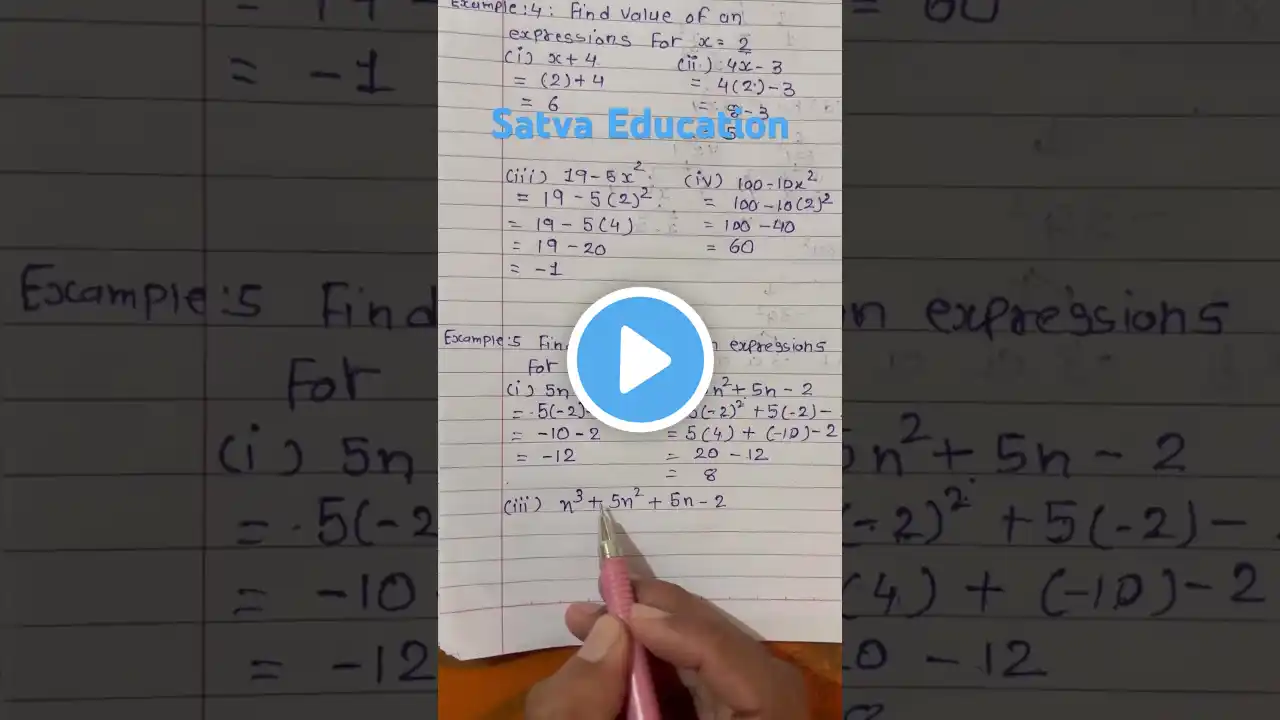 Example:4: Find value of an
expressions for x = 2
(i) x + 4
= (2) + 4
= 6
(ii) 4x - 3
= 4(2) - 3
= 8 - 3
5
Satva Education
(iii) 19 - 5x²
= 19 - 5(2)²
= 19 - 5(4)
= 19 - 20
= -1
(iv) 100 - 10x²
= 100 - 10(2)²
= 100 - 40
= 60
Example:5 Find expressions
For
(i) 5n
= 5(-2)
= -10 - 2
= -12
n² + 5n - 2
(-2)² + 5(-2) -
= 5(4) + (-10) - 2
= 20 - 12
= 8
(iii) n³ + 5n² + 5n - 2